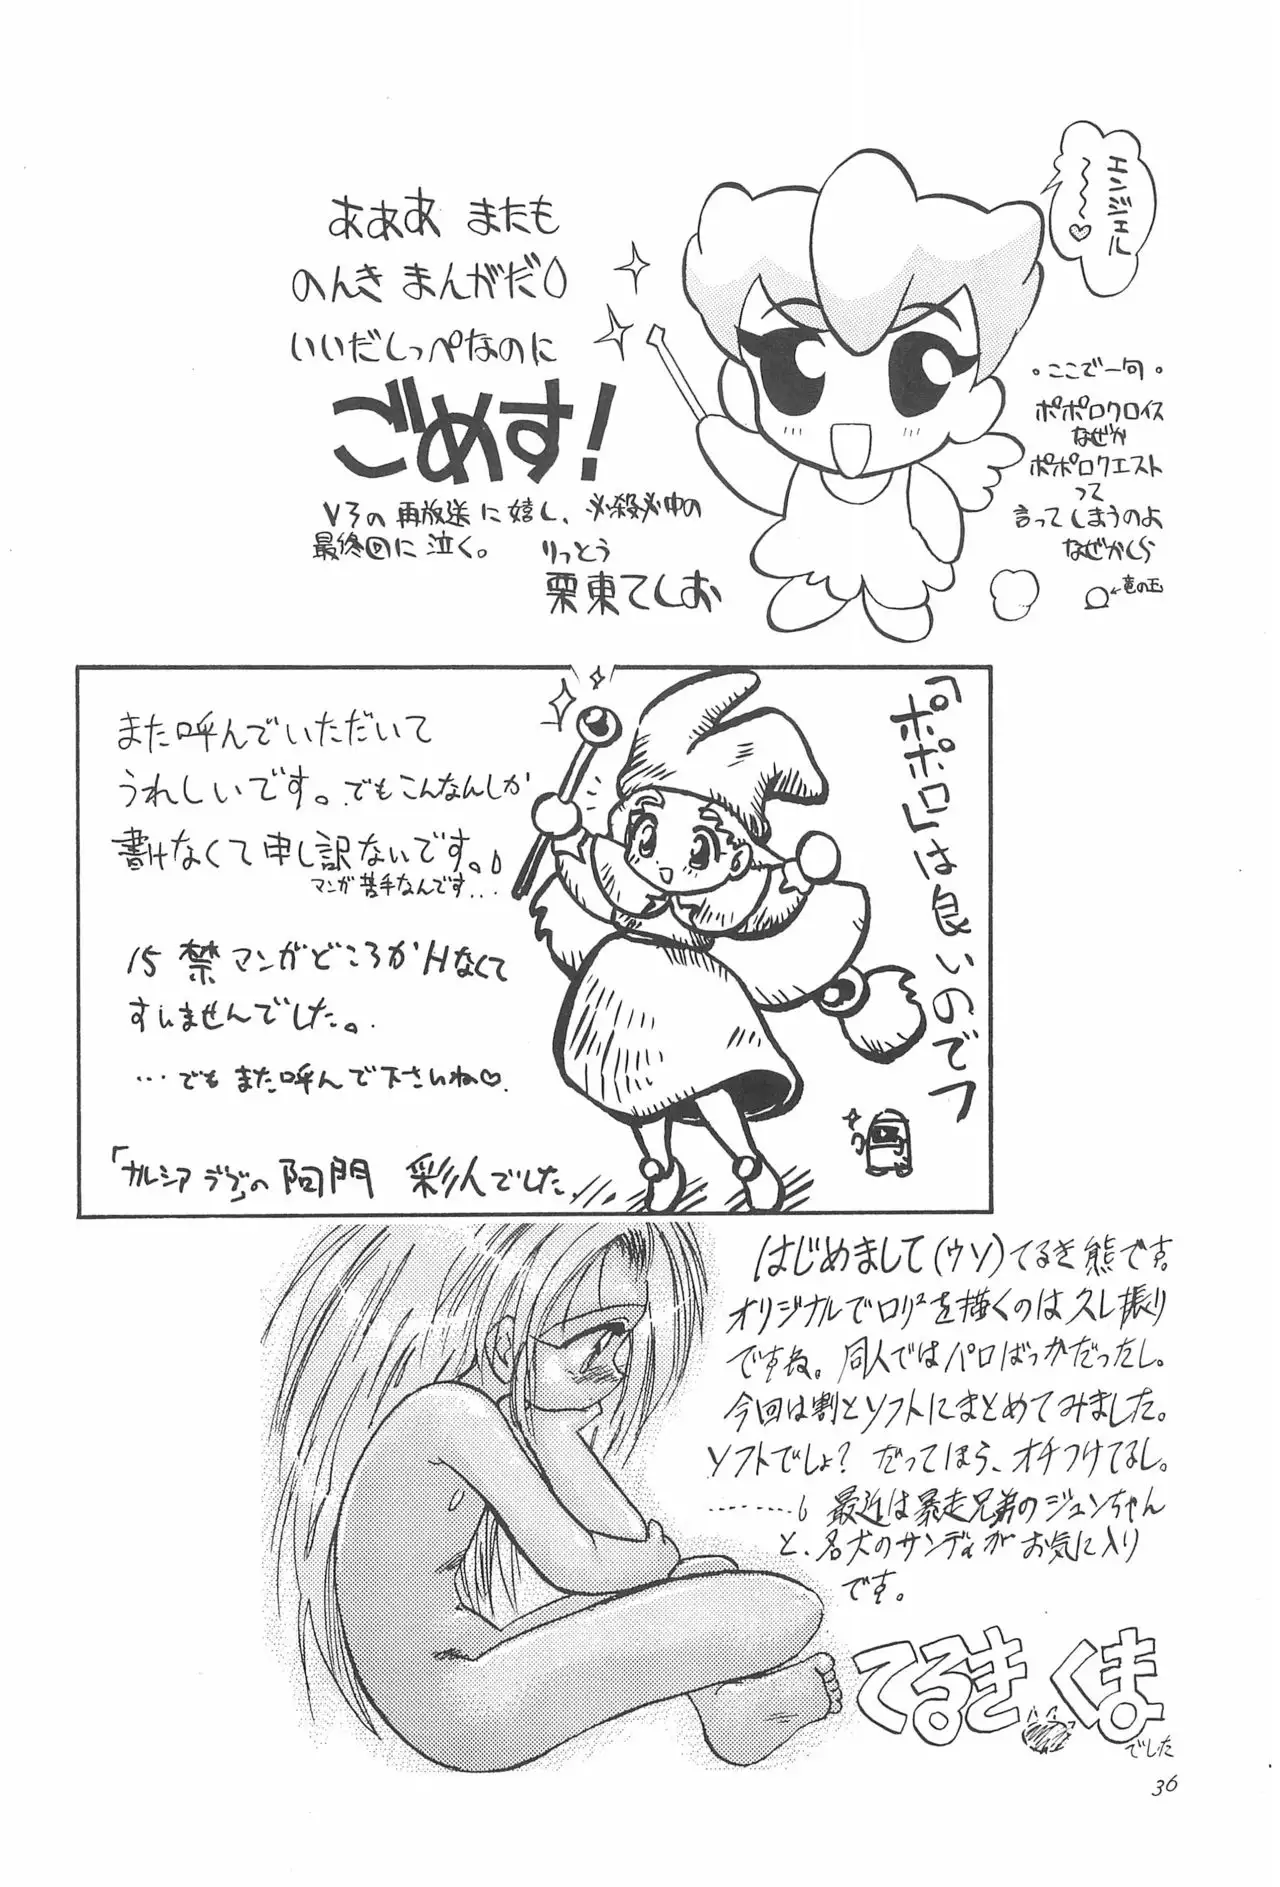 ああああ またも
のんき まんがだ
いいだしっぺなのに
ごめす!
V3の再放送に嬉し、必殺必中の
最終回に泣く。
りっとう
栗東てしお
エンジェル
〜〜〜♡
・ここで一句・
ポポロクロイス
なぜか
ポポロクエスト
って
言ってしまうのよ
なぜかしら
←竜の玉
「ポポロ」は良いのでフ
また呼んでいただいて
うれしいです。でもこんなんしか
書けなくて申し訳ないです。
マンガ苦手なんです...
15禁マンガどころかHなくて
すいませんでした。
...でも また呼んで下さいね♡.
「ナルシア ラブ」の 阿門 彩人でした.
はじめまして(ウソ)てるき熊です。
オリジナルでロリ²を描くのは久し振り
ですね。同人ではパロばっかだったし。
今回は割とソフトにまとめてみました。
ソフトでしょ? だってほら、オチつけてるし。
........。最近は暴走兄弟のジュンちゃん
と、名犬のサンディがお気に入り
です。
てるき くま
でした
36